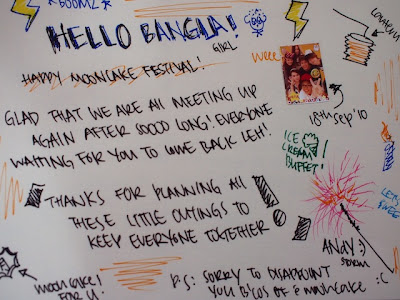 *BOOMZ*
HELLO BANGLA!
GIRL
lantern
HAPPY MOONCAKE FESTIVAL!
weee
18th Sep '10
GLAD THAT WE ARE All MEETING UP
AGAIN AFTER SOOOO LONG! EVERYONE
WAITING FOR YOU TO COME BACK LEH!
ICE
CREAM
BUFFET!
THANKS FOR PLANNING All
THESE LITTLE OUTINGS TO
KEEP EVERYONE TOGETHER
LET'S
ANDY :)
mooncake!
FOR U!
P.S: SORRY TO DISAPPOINT
YOU B'COS OF mahncake :C